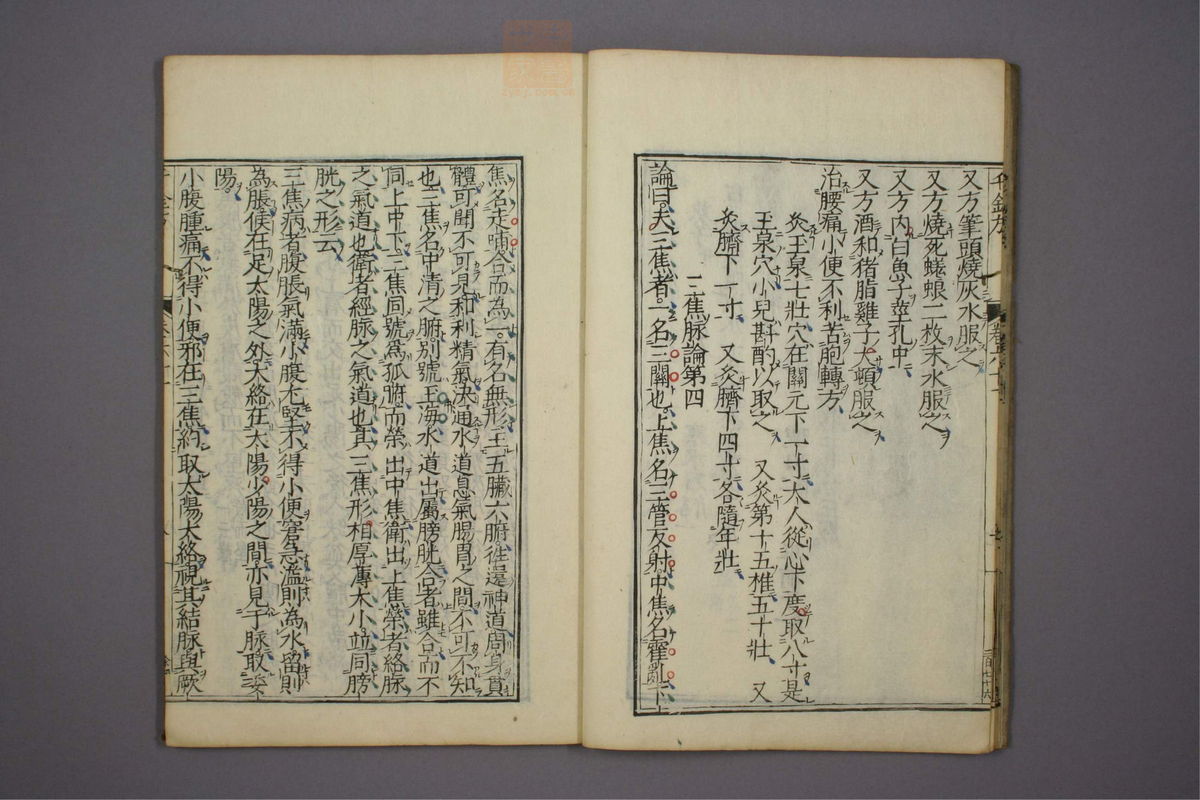 又方筆頭燒灰水服之
又方燒死蜣蜋二枚末水服之
又方內白魚子莖孔中
又方酒和猪脂雞子大頓服之
治腰痛小便不利苦胞轉方
灸玉泉七壯穴在關元下一寸大人從心下度取八寸是
玉泉穴小兒斟酌以取之 又灸第十五椎五十壯 又
灸臍下一寸 又灸臍下四寸各隨年壯
三焦脉論第四
論曰夫三焦者一名三關也上焦名三管反射中焦名霍亂下
焦名走哺合而為一有名無形主五臟六腑往還神道周身貫
體可聞不可見和利精氣决通水道息氣腸胃之間不可不知
也三焦名中清之腑別號玉海水道出屬膀胱合者雖合而不
同上中下三焦同號為孤腑而榮出中焦衛出上焦榮者絡脉
之氣道也衛者經脉之氣道也其三焦形相厚薄大小竝同膀
胱之形云
三焦病者腹脹氣滿小腹尤堅不得小便窘急溢則為水留則
為脹候在足太陽之外大絡在太陽少陽之間亦見于脉取委
陽
小腹腫痛不得小便邪在三焦約取太陽大絡視其結脉與厥